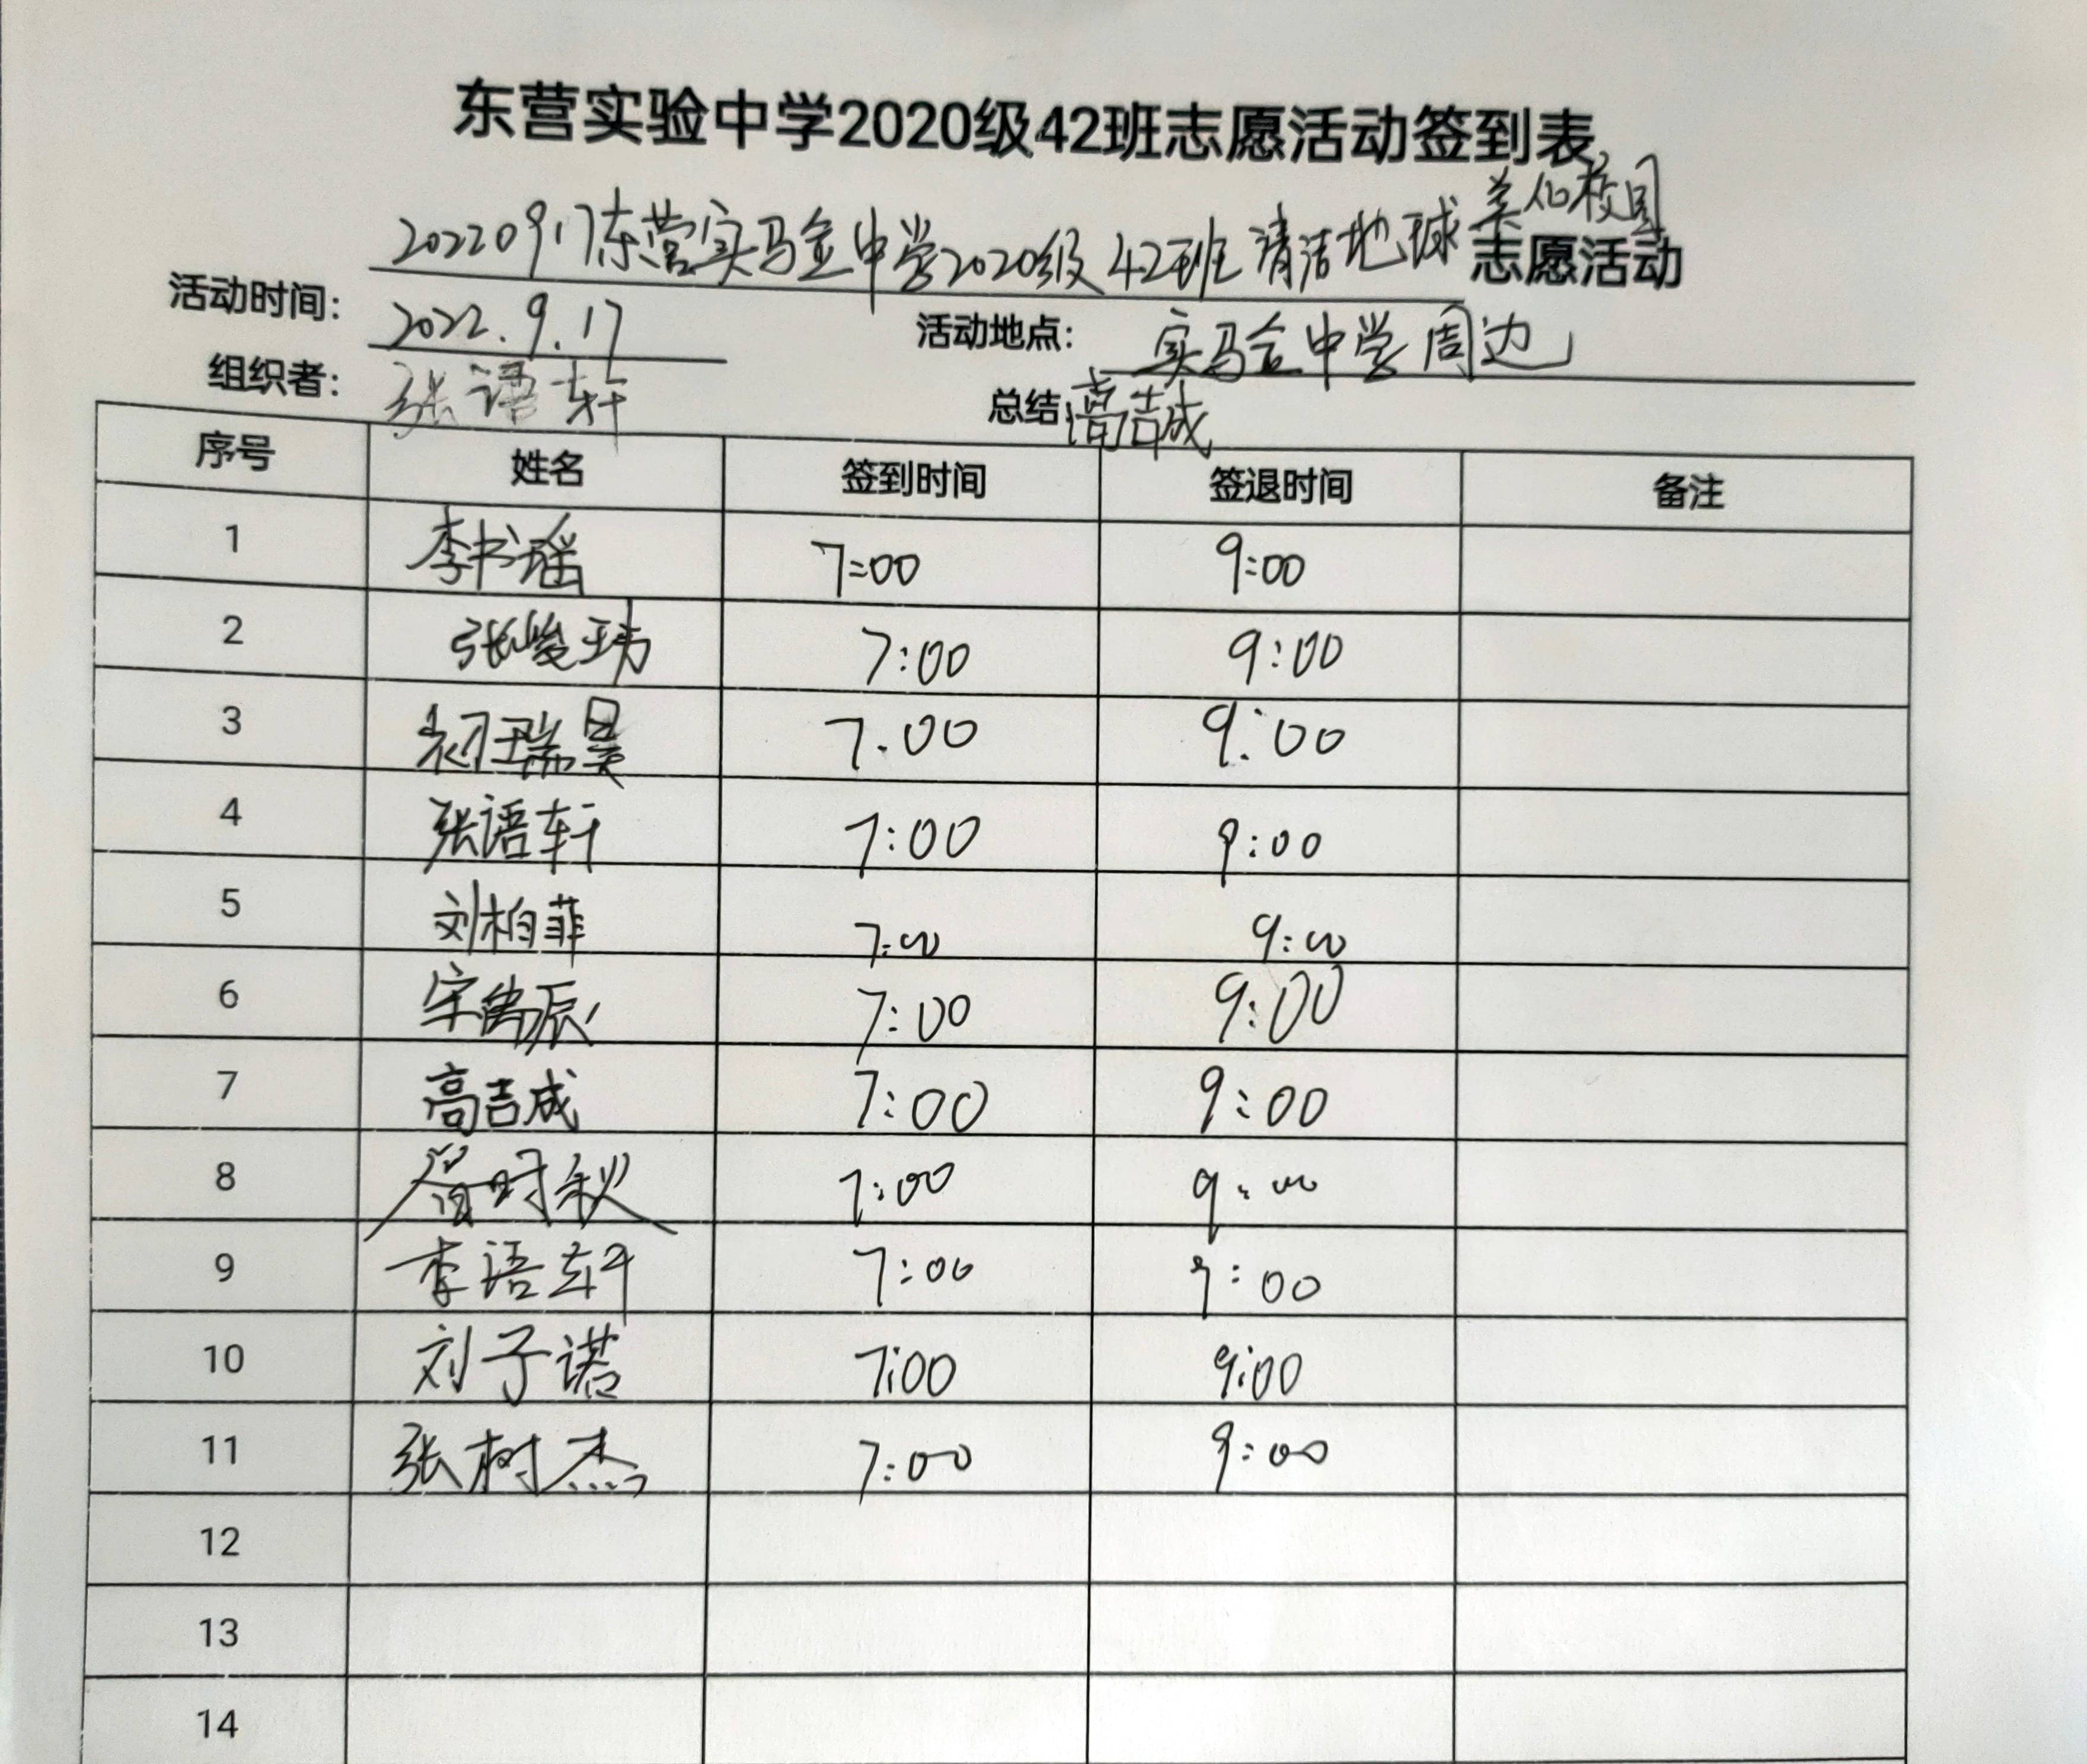 东营实验中学2020级42班志愿活动签到表
美化校园
20220917东营实验中学2020级42班清洁地球志愿活动
活动时间: 2022.9.17 活动地点: 实验中学周边
组织者: 张语轩 总结: 高吉成
序号 姓名 签到时间 签退时间 备注
1 李书瑶 7:00 9:00
2 张峻玮 7:00 9:00
3 瑞昊 7.00 9:00
4 张语轩 7:00 9:00
5 刘柏菲 7:00 9:00
6 宋 辰 7:00 9:00
7 高吉成 7:00 9:00
8 时秋 7:00 9:00
9 李语轩 7:00 9:00
10 刘子诺 7:00 9:00
11 张树杰 7:00 9:00
12
13
14